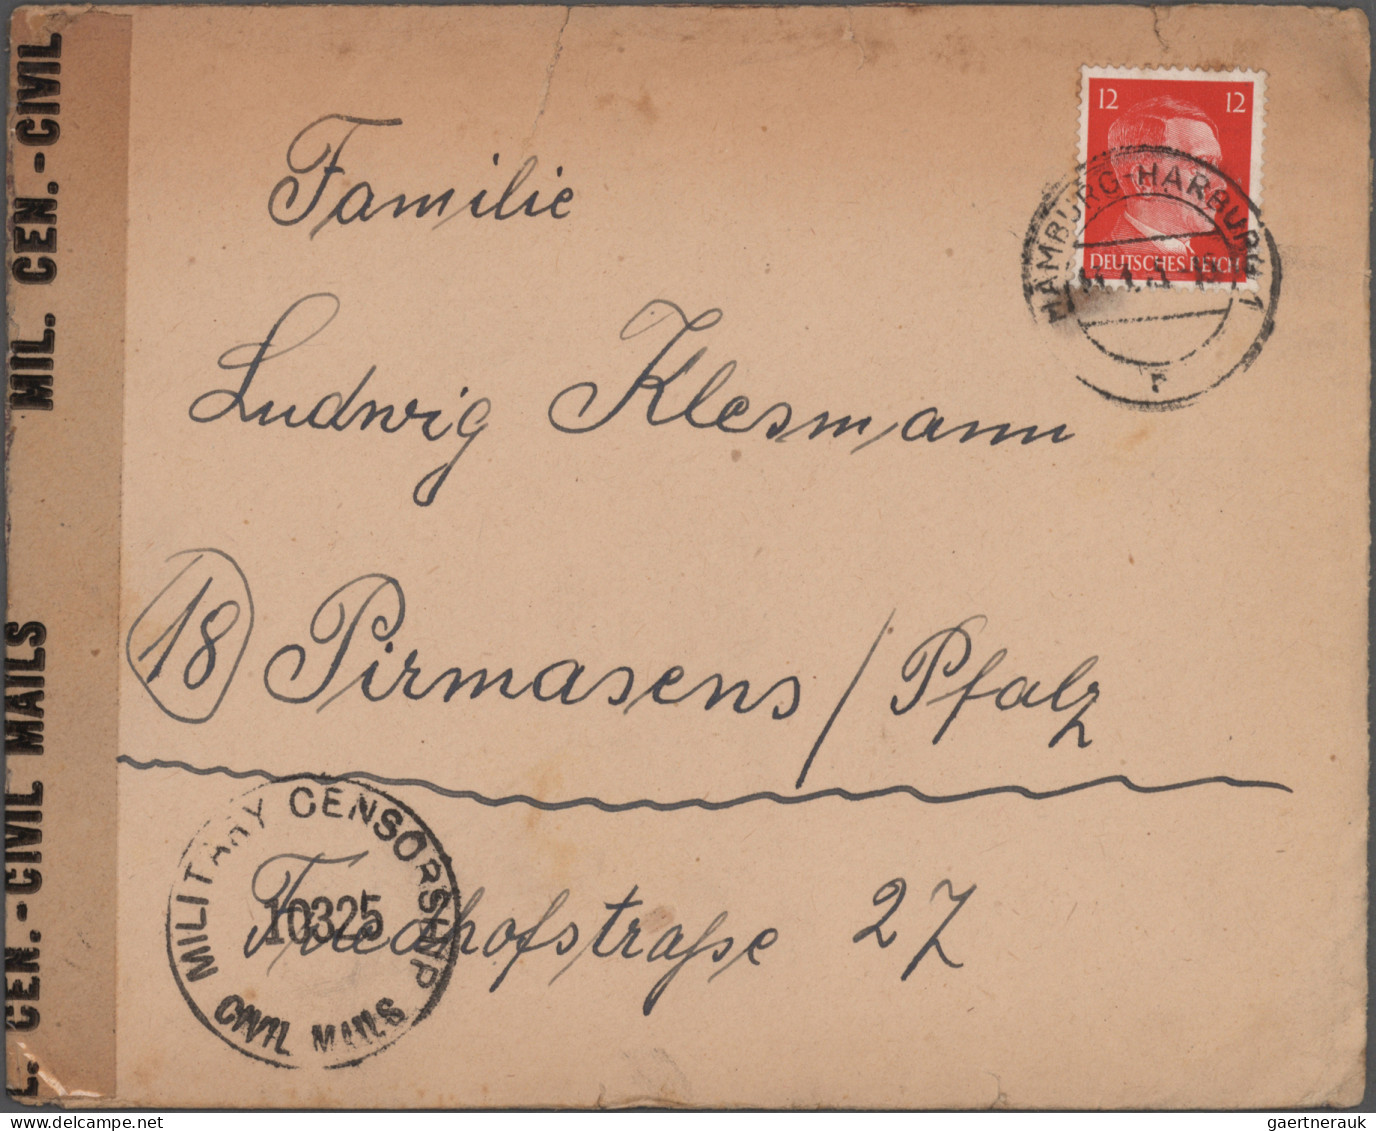 MIL. CEN.-CIVIL
CEN.-CIVIL MAILS
12 12
DEUTSCHES REICH
HAMBURG-HARBURG 1
Familie
Ludwig Klesmann
18 Pirmasens / Pfalz
Friedhofstraße 27
MILITARY CENSORSHIP
10325
CIVIL MAILS
www.delcampe.net
gaertnerauk